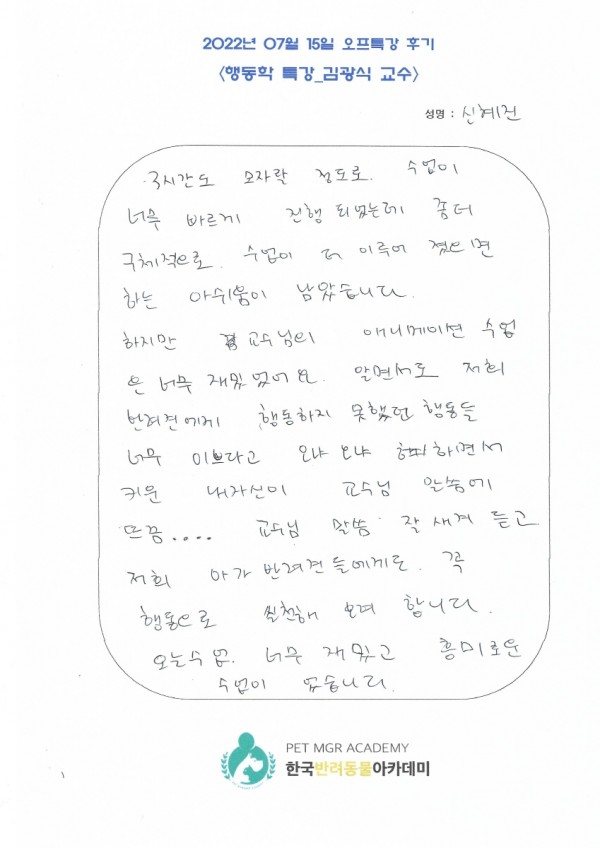 2022년 07월 15일 오프특강 후기
<행동학 특강_김광식 교수>
성명 : 신혜진
3시간도 모자락 정도로. 수업이
너무 빠르게 진행 되었는데 좀더
구체적으로. 수업이 더 이루어 졌으면
하는 아쉬움이 남았습니다.
하지만 교수님의 애니메이션 수업
은 너무 재밌었어요. 알면서도 저희
반려견에게 행동하지 못했던 행동들
너무 이쁘다고 오냐 오냐 하면서
키운 내자신이 교수님 말씀에
뜨끔.... 교수님 말씀 잘 새겨 듣고
저희 아가 반려견들에게도. 꼭
행동으로 실천해 보려 합니다.
오늘수업. 너무 재밌고 흥미로운
수업이 었습니다.
PET MGR ACADEMY
한국반려동물아카데미